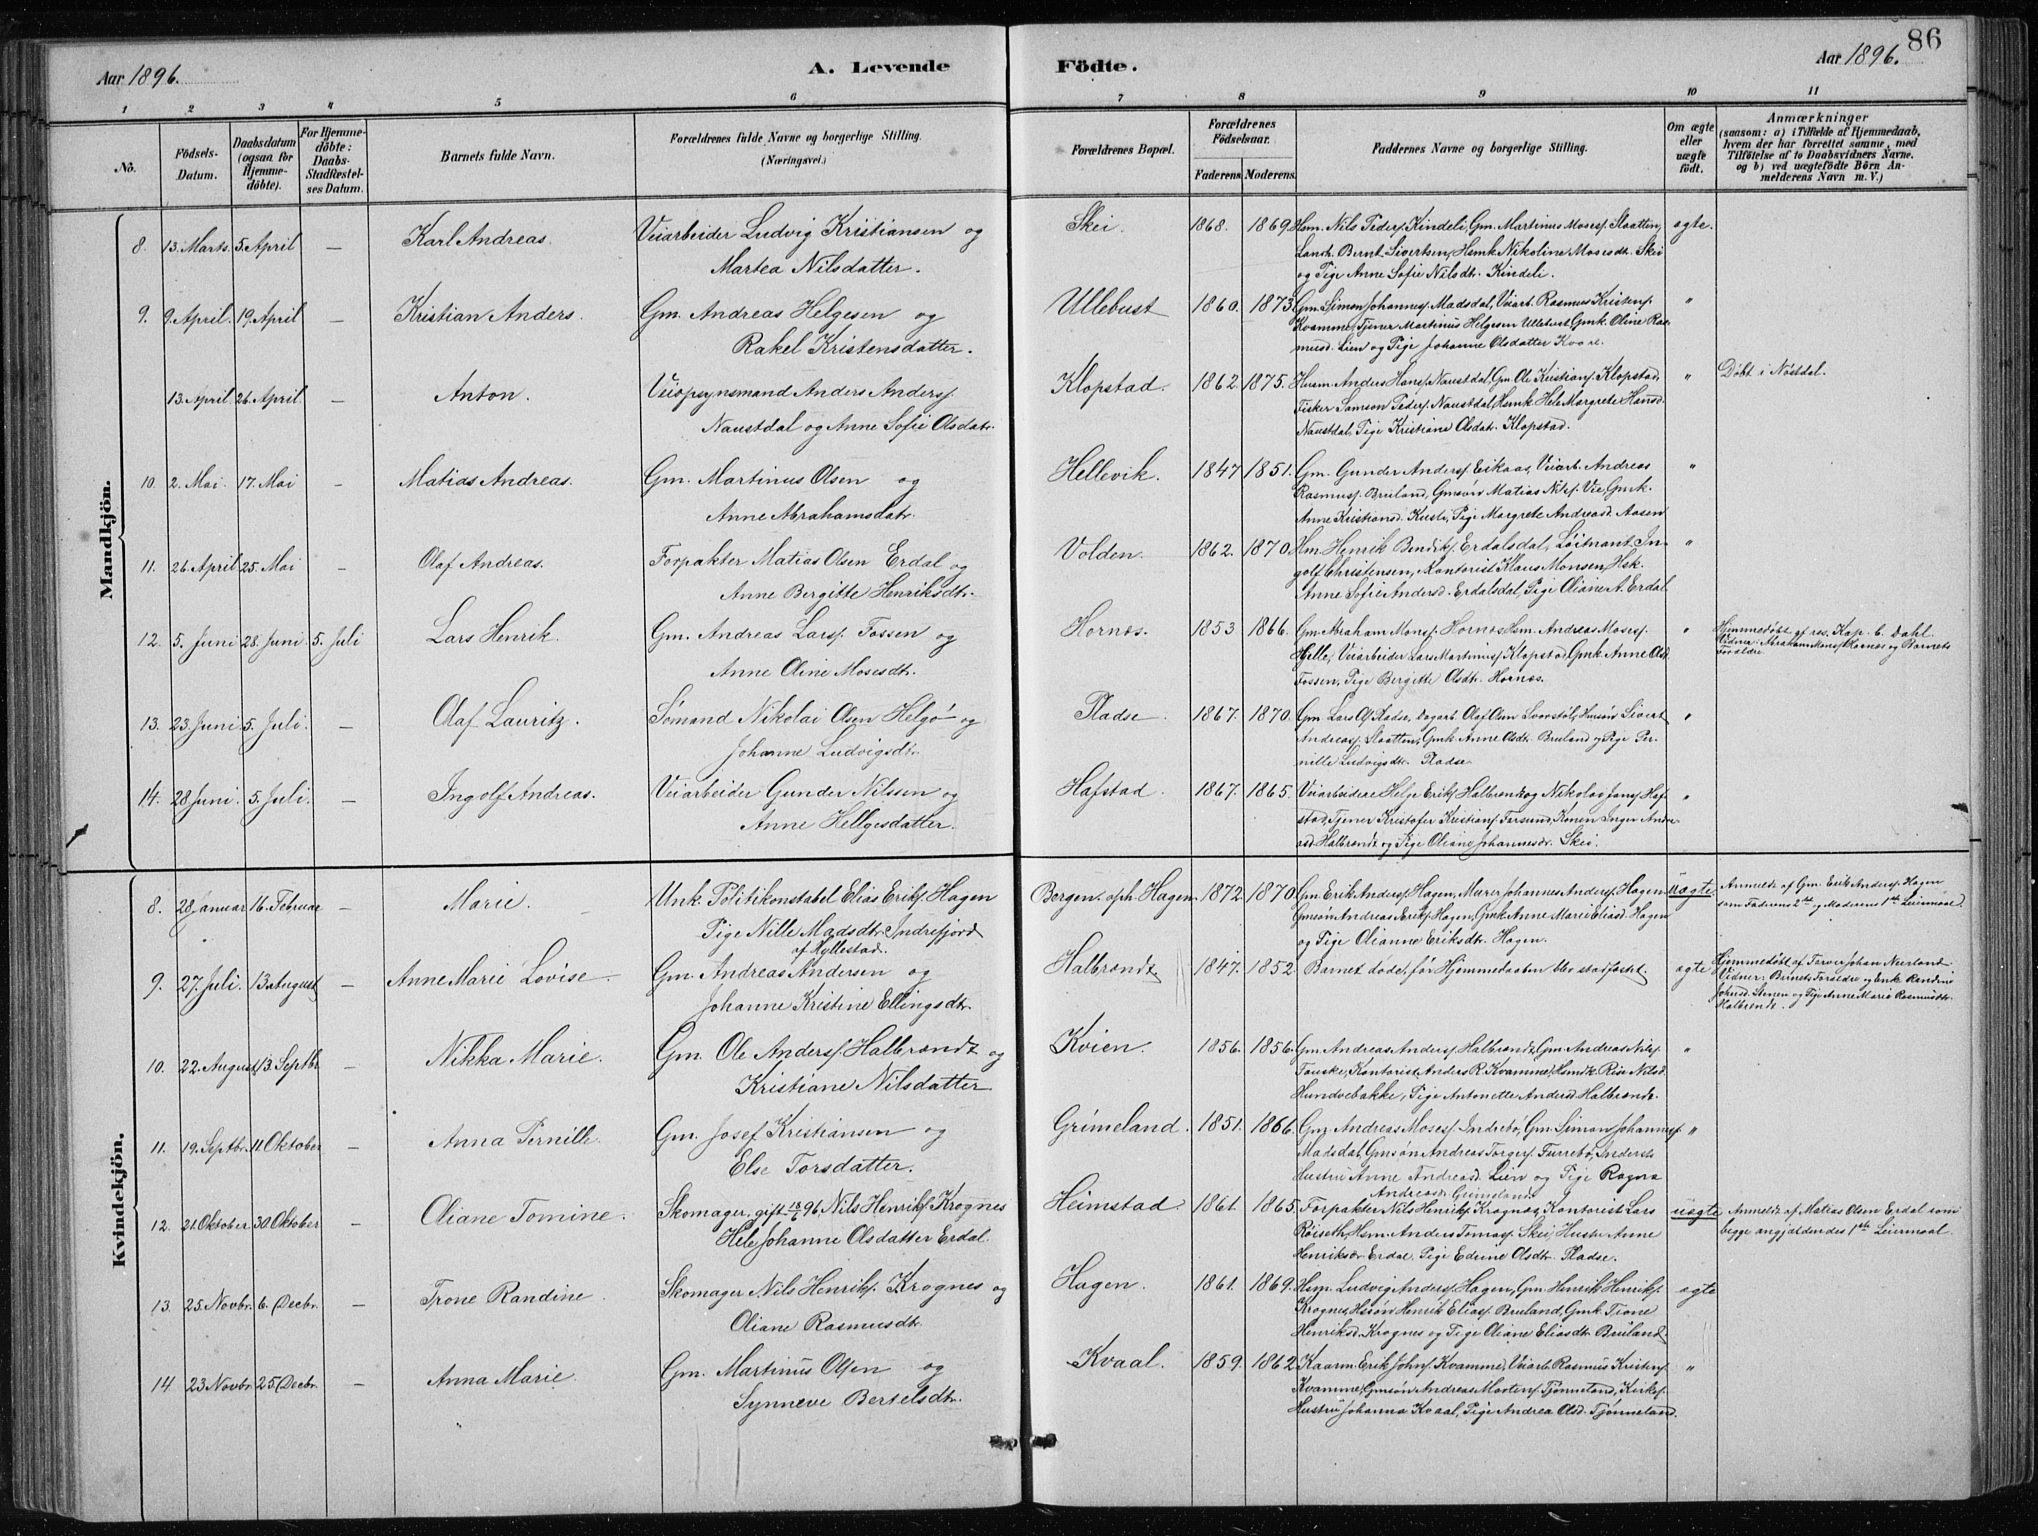 86
Aar 1896.
A. Levende
Födte.
Aar 1896.
1 2 3 4 5 6 7 8 9 10 11
No.
Födsels-Datum.
Daabsdatum (ogsaa for Hjemme-döbte).
For Hjemme-döbte: Daabs-Stadfæstel-ses Datum.
Barnets fulde Navn.
Forældrenes fulde Navne og borgerlige Stilling.
(Næringsvei.)
Forældrenes Bopæl.
Forældrenes Födselsaar.
Faderens. Moderens.
Faddernes Navne og borgerlige Stilling.
Om ægte eller uægte födt.
Anmærkninger
(saasom: a) i Tilfælde af Hjemmedaab, hvem der har forrettet samme, med Tilföielse af to Daabsvidners Navne. og b) ved uægtefödte Börn An-melderens Navn m. V.)
Mandkjön.
8. 13. Marts. 5. April — Karl Andreas. Veiarbeider Ludvig Kristiansen og
Martea Nilsdatter.
Skei. 1868. 1869. Hsm. Nils Peders. Kindeli, Gm. Martinus Moses. Slaatten, ægte.
Landh. Bernt Sivertsen, Hsmk Nikoline Mosesdt. Skei
og Pige Anne Sofie Nilsdt. Kindeli.
9. 9. April. 19. April — Kristian Anders. Gm. Andreas Helgesen og
Rakel Kristensdatter.
Ullebust 1860. 1873. Gm. Simon Johannes. Madsdal, Veiarb. Rasmus Kristens. "
Kvamme, Tjener Martinus Helgesen Ullebust, Gmk. Oline Ras-
musd. Lien og Pige Johanne Olsdatter Kvaal.
13. April 26. April — Anton. Veiopsynsmand Anders Anders.
Naustdal og Anne Sofie Olsdatr.
Klopstad. 1862. 1875. Husm. Anders Hans. Naustdal, Gm. Ole Kristians. Klopstad, " Döbt i Nöstdal.
Fisker Samson Peders. Naustdal, Hsmk Hele Margrete Hansd.
Naustdal, Pige Kristiane Olsdatr. Klopstad.
10. 2. Mai. 17. Mai — Matias Andreas. Gm. Martinus Olsen og
Anne Abrahamsdatr.
Hellevik. 1847 1851. Gm. Gunder Anders. Eikaas, Veiarb. Andreas "
Rasmus. Bruland, Gmsön Matias Nils. Vie, Gmk.
Anne Kristiansd. Kusli, Pige Margrete Andreasd. Aasen
11. 26. April 25. Mai — Olaf Andreas. Forpakter Matias Olsen Erdal og
Anne Bergitte Henriksdt.
Volden. 1862. 1870. Hm. Henrik Bendiks. Erdalsdal, Löitnant In- "
golf Christensen, Kontorist Klaus Monsen, Hsk.
Anne Sofie Andersd. Erdalsdal, Pige Oliane A. Erdal
12. 5. Juni 28. Juni 5. Juli Lars Henrik. Gm. Andreas Lars. Fossen og
Anne Oline Mosesdt.
Hornes. 1853 1866. Gm. Abraham Mons. Hornes, Hsm. Andreas Moses. " Hjemmedöbt af res. Kap. C. Dahl.
Hjelle, Veiarbeider Lars Martinus. Klopstad, Gmk. Anne Olsd. Vidner: Abraham Mons. Hornes og Barnets
Fossen, Pige Bergitte Olsdt. Hornes. Forældre
13. 23. Juni 5. Juli. — Olaf Lauritz. Sömand Nikolai Olsen Helgö og
Johanne Ludvigsdt.
Fladse. 1867. 1870. Gm. Lars Ols. Fladse, Dagarb. Olaf Olsen, Husön Sivert "
Andreas. Slaatten, Gmk. Anne Olsdt. Bruland og Pige Per-
nille Ludvigsdt. Fladse.
14. 28 Juni. 5. Juli. — Ingolf Andreas. Veiarbeider Gunder Nilsen og
Anne Hellgesdatter.
Hafstad. 1867. 1865. Veiarbeidere Helge Eriks. Halbrendz og Nikolai Jans. Haf- "
stad, Tjener Kristofer Kristians. Farsund, Konen Inger Andre-
asd Halbrendz og Pige Oliane Johannesdr. Skei.
Kvindekjön.
8. 28 Januar 16. Februar — Marie. Unk. Politikonstabel Elias Eriks. Hagen
Pige Nille Madsdtr. Indrefjord
af Hyllestad.
Bergen. oph. Hagen. 1872. 1870. Gm. Erik Anders. Hagen, Murer Johannes Anders. Hagen uægte Anmeldt af Gm. Erik Anders. Hagen
Gmsön Andreas Eriks. Hagen, Gmk. Anne Marie Eliasd. Hagen som Faderens 2det og Moderens 1ste Leiermaal.
og Pige Olianne Eriksdtr. Hagen.
9. 27. Juli. 13. August — Anne Marie Lovise. Gm. Andreas Andersen og
Johanne Kristine Ellingsdt.
Halbrendz 1847. 1852. Barnet döde, för Hjemmedaaben blev stadfæstet. ægte Hjemmedöbt af Farver Johan Neerland
Vidner: Barnets Forældre og Enk. Randine
Stenen og Pige Anne Marie Rasmusdtr.
Halbrendz.
10. 22. August 13. Septbr. — Nikka Marie. Gm. Ole Anders. Halbrendz og
Kristiane Nilsdatter
Kvien. 1856. 1856. Gm. Andreas Anders. Halbrendz, Gm. Andreas Nils. "
Fauske, Kontorist Anders R. Kvamme, Hsmdt. Rise Nilsd.
Hundvebakke, Pige Antonette Andersd. Halbrendz.
11. 19. Septbr. 11. Oktober — Anna Pernille. Gm. Josef Kristiansen og
Else Torsdatter.
Grimeland. 1851. 1866. Gm. Andreas Moses. Indrebö, Gm. Simon Johannes. "
Madsdal, Gmsön Andreas Torger. Furrebö, Inderst
Hustru Anne Andreasd. Lien og Pige Ragna
Andreasd. Grimeland.
12. 21. Oktober 30. Oktober — Oliane Tomine. Skomager, gift 13/6 96 Nils Henriks. Krognes
Hele Johanne Olsdatter Erdal.
Heimstad. 1861. 1865. Forpakter Nils Henriks. Krognes, Kontorist Lars uægte Anmeldt af Matias Olsen Erdal som
Röiseth, Hsm. Anders Tomas. Skei, Hustr. Anne begge angjældendes 1ste Leiermaal.
Henriksdr Erdal, Pige Edvine Olsdt. Fladse.
13. 25. Novbr. 6. Decbr. — Trone Randine. Skomager Nils Henriks. Krognes og
Oliane Rasmusdt.
Hagen. 1861. 1869. Hsm. Ludvig Anders. Hagen, Gm. Henrik Henriks. ægte
Krognes, Hsön Henrik Elias. Bruland, Gmk. Tione
Henriksd. Krognes og Pige Oliane Eliasdt. Bruland.
14 23. Novbr. 25. Decbr. — Anna Marie. Gm. Martinus Olsen og
Synneve Bertelsdt.
Kvaal. 1859. 1862. Kaarm. Erik Johns. Kvamme, Veiarb. Rasmus Kristens. "
Kvamme, Gmsön Andreas Mortens. Tjönneland, Kirkes.
Hustru Johanna Kvaal, Pige Andrea Olsd. Tjönneland.